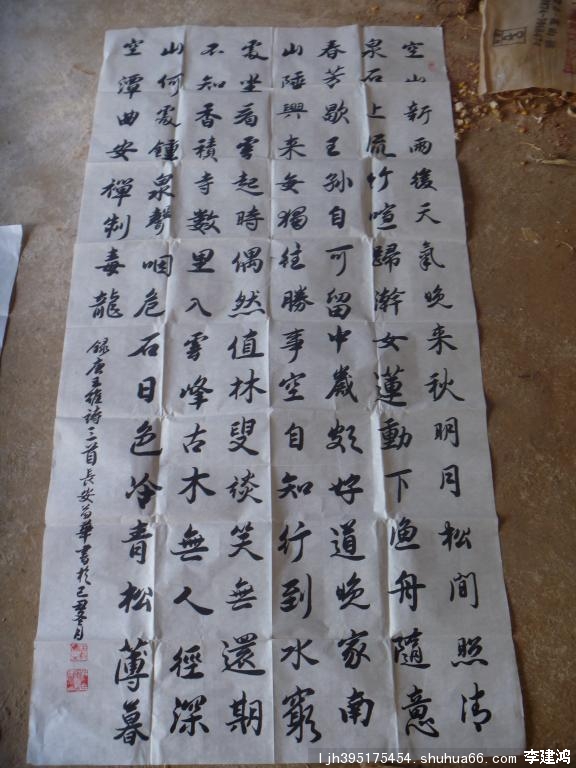 空山新雨後天氣晚来秋明月松間照清
泉石上流竹喧歸澣女蓮動下渔舟隨意
春芳歇王孫自可留中歲頗好道晚家南
山陲興来每獨往勝事空自知行到水窮
處坐看雲起時偶然值林叟談笑無還期
不知香積寺數里入雲峰古木無人徑深
山何處鍾泉聲咽危石日色冷青松薄暮
空潭曲安禪制毒龍
録唐王維詩三首長安華書於己丑冬月
ljh395175454. shuhua66. com 李建鸿